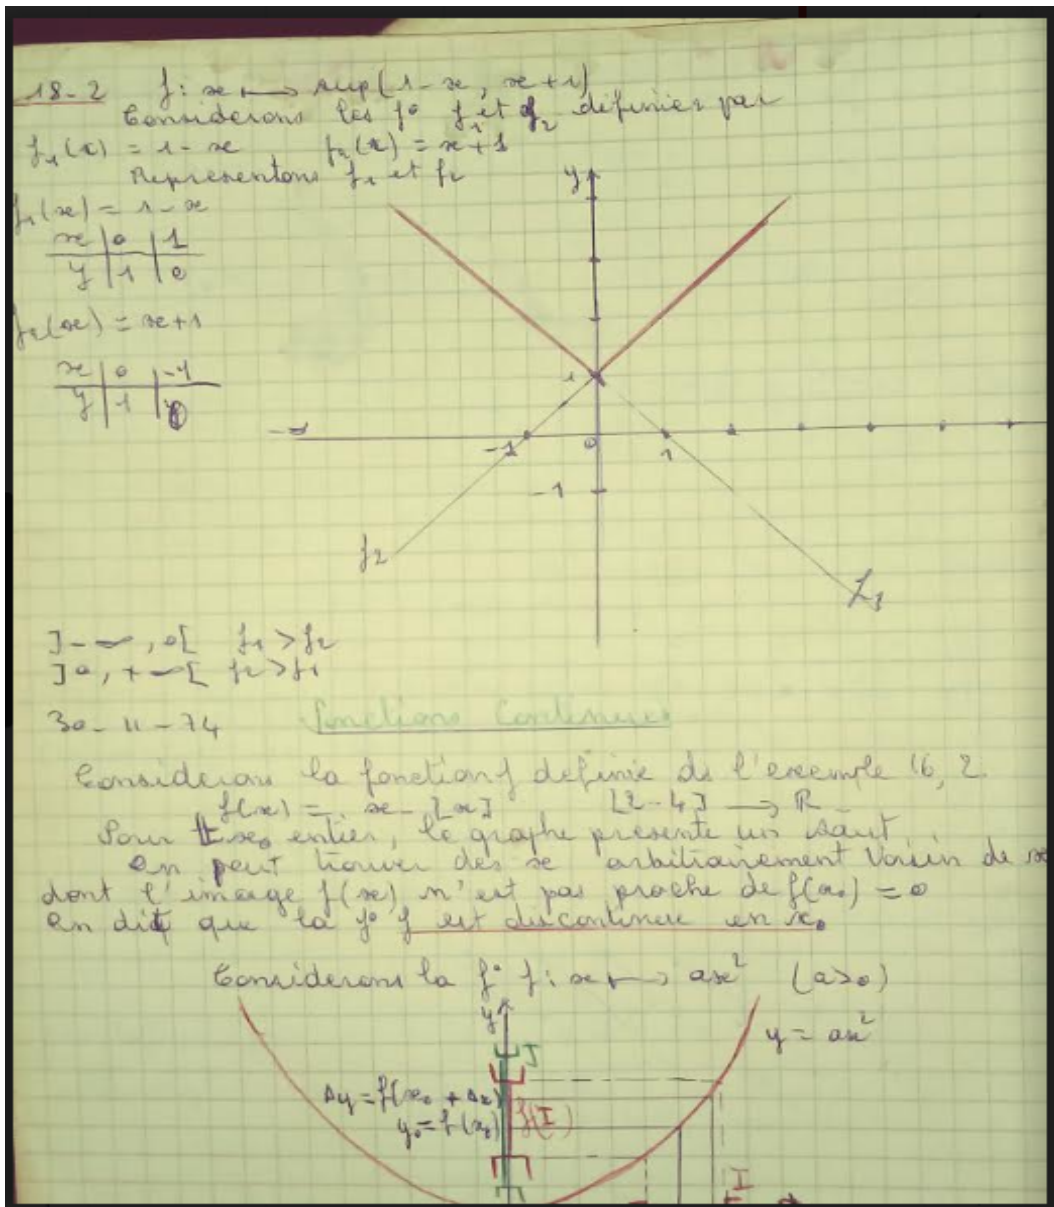 18-2 f: x ⟼ sup(1-x, x+1)
Considerons les f° f₁ et f₂ définies par
f₁(x) = 1-x f₂(x) = x+1
Representons f₁ et f₂
f₁(x) = 1-x
x | 0 | 1
y | 1 | 0
f₂(x) = x+1
x | 0 | -1
y | 1 | 0
y
1
-∞ -1 0 1
-1
f2
f₁
]-∞, 0[ f₁ > f₂
]0, +∞[ f₂ > f₁
30-11-74 Fonctions Continues
Considerons la fonction f definie de l'exemple 16, 2
f(x) = x - [x] [2-4] ⟶ ℝ
Pour x₀ entier, le graphe présente un saut.
on peut trouver des x arbitrairement voisin de x₀
dont l'image f(x) n'est pas proche de f(x₀) = 0
on dit que la f° f est discontinue en x₀
Considerons la f° f: x ⟼ ax² (a>0)
y
y = ax²
J
Δy = f(x₀ + Δx)
y₀ = f(x₀) f(I)
I